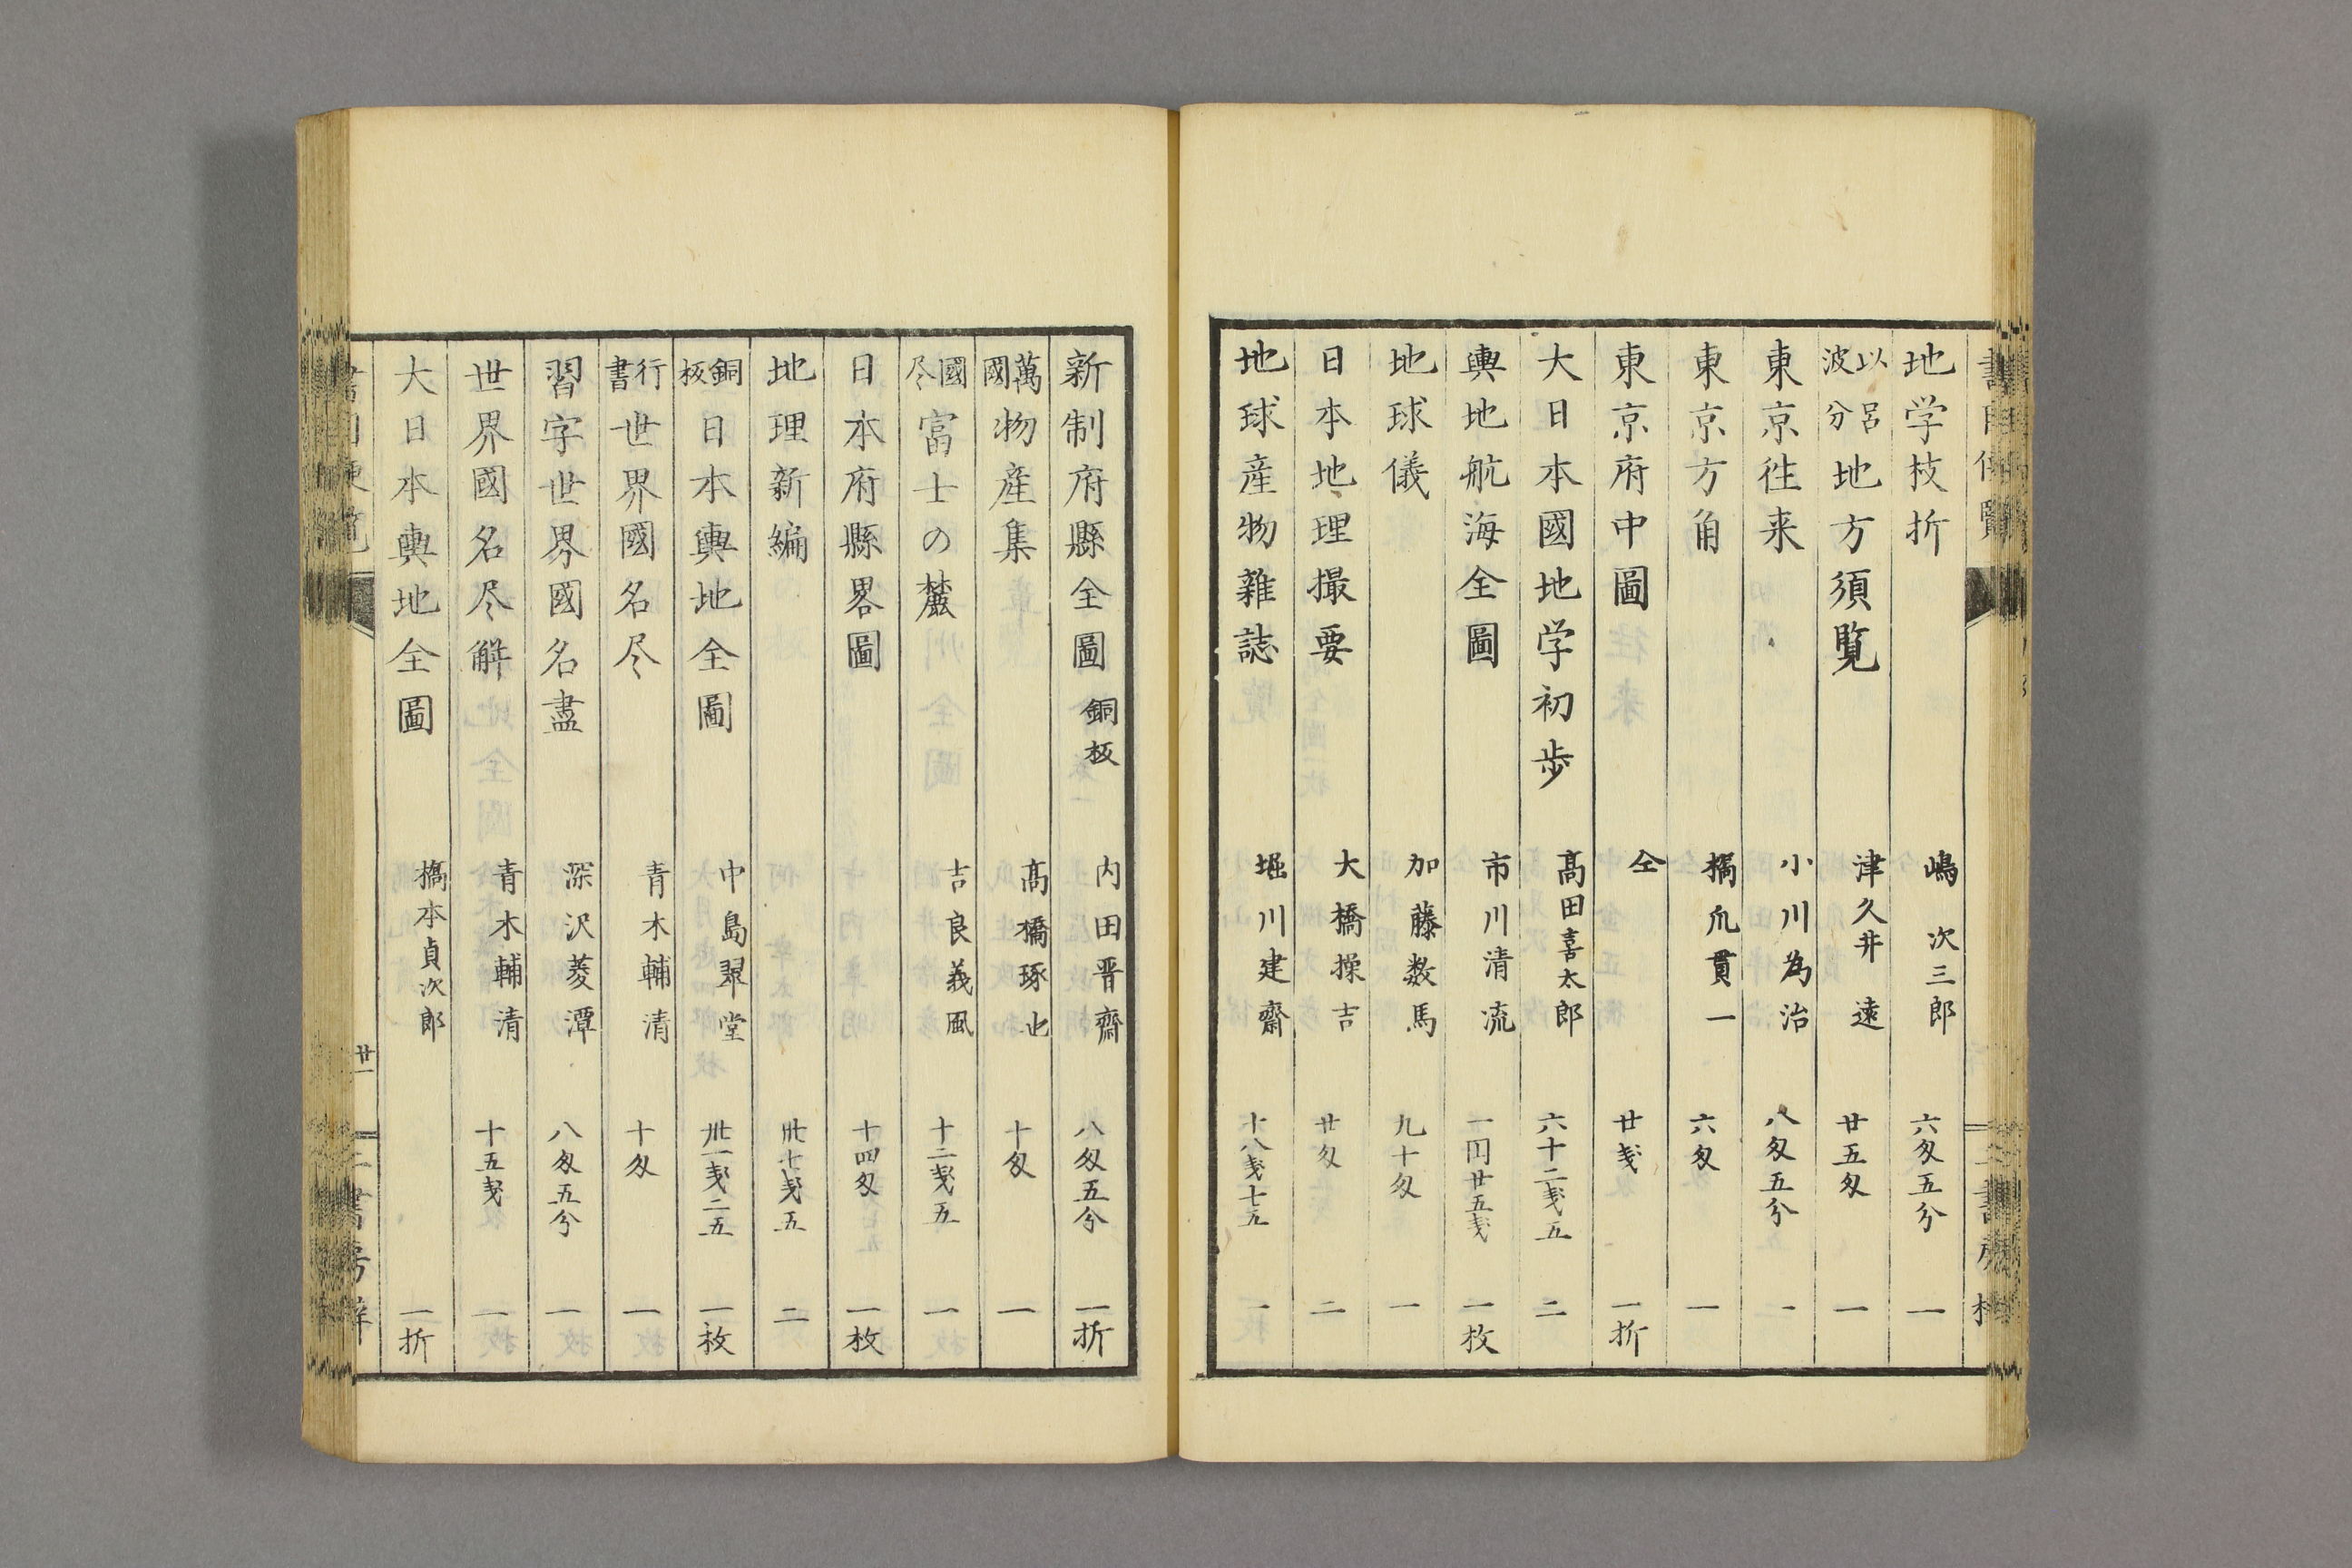 地学枝折 嶋次三郎 六匁五分 一
以呂波分 地方須覧 津久井遠 廿五匁 一
東京往来 小川為治 八匁五分 一
東京方角 橋爪貫一 六匁 一
東京府中圖 仝 廿戔 一折
大日本國地学初歩 髙田喜太郎 六十二戔五 二
輿地航海全圖 市川清流 一円廿五戔 一枚
地球儀 加藤数馬 九十匁 一
日本地理撮要 大橋操吉 廿匁 二
地球産物雜誌 堀川建齋 十八戔七五 一
新制府縣全圖 銅板 内田晋齋 八匁五分 一折
萬國物産集 髙橋琢也 十匁 一
國尽 富士の麓 吉良義風 十二戔五 一
日本府縣畧圖 十四匁 一枚
地理新編 卅七戔五 二
銅板 日本輿地全圖 中島翠堂 卅一戔二五 一枚
行書 世界國名尽 青木輔清 十匁 一
習字世界國名盡 深沢菱潭 八匁五分 一
世界國名尽解 青木輔清 十五戔 一
大日本輿地全圖 橋本貞次郎 一折
廿一